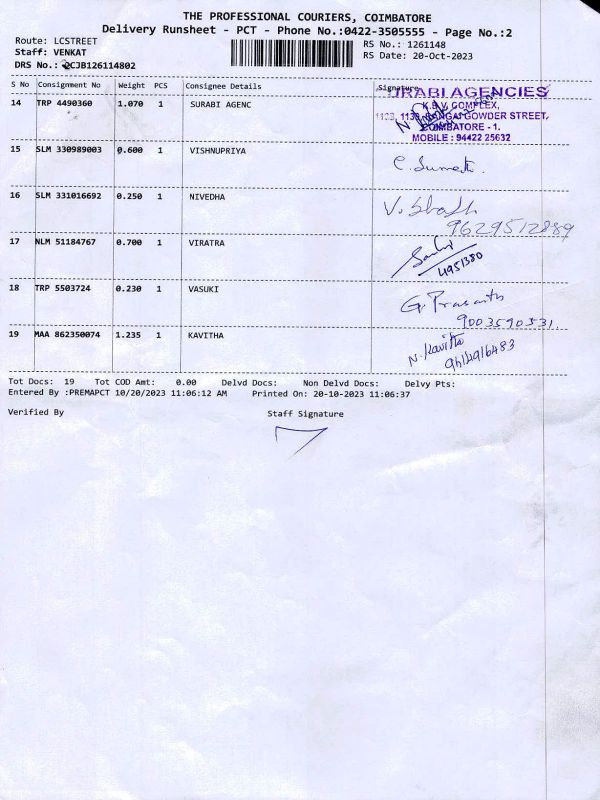 THE PROFESSIONAL COURIERS, COIMBATORE
Delivery Runsheet - PCT - Phone No.:0422-3505555 - Page No.:2
Route: LCSTREET
Staff: VENKAT
DRS No.: CJB126114802
RS No.: 1261148
RS Date: 20-Oct-2023
S No Consignment No Weight PCS Consignee Details Signature
14 TRP 4490360 1.070 1 SURABI AGENC
URABI AGENCIES
K.B.V. COMPLEX,
GOWDER STREET,
COIMBATORE - 1.
MOBILE : 94422 25632
15 SLM 330989003 0.600 1 VISHNUPRIYA
16 SLM 331016692 0.250 1 NIVEDHA
9629512889
17 NLM 51184767 0.700 1 VIRATRA
4951380
18 TRP 5503724 0.230 1 VASUKI G. Prasanth
9003590531.
19 MAA 862350074 1.235 1 KAVITHA N. Kavitha
9614916483
Tot Docs: 19 Tot COD Amt: 0.00 Delvd Docs: Non Delvd Docs: Delvy Pts:
Entered By :PREMAPCT 10/20/2023 11:06:12 AM Printed On: 20-10-2023 11:06:37
Verified By Staff Signature